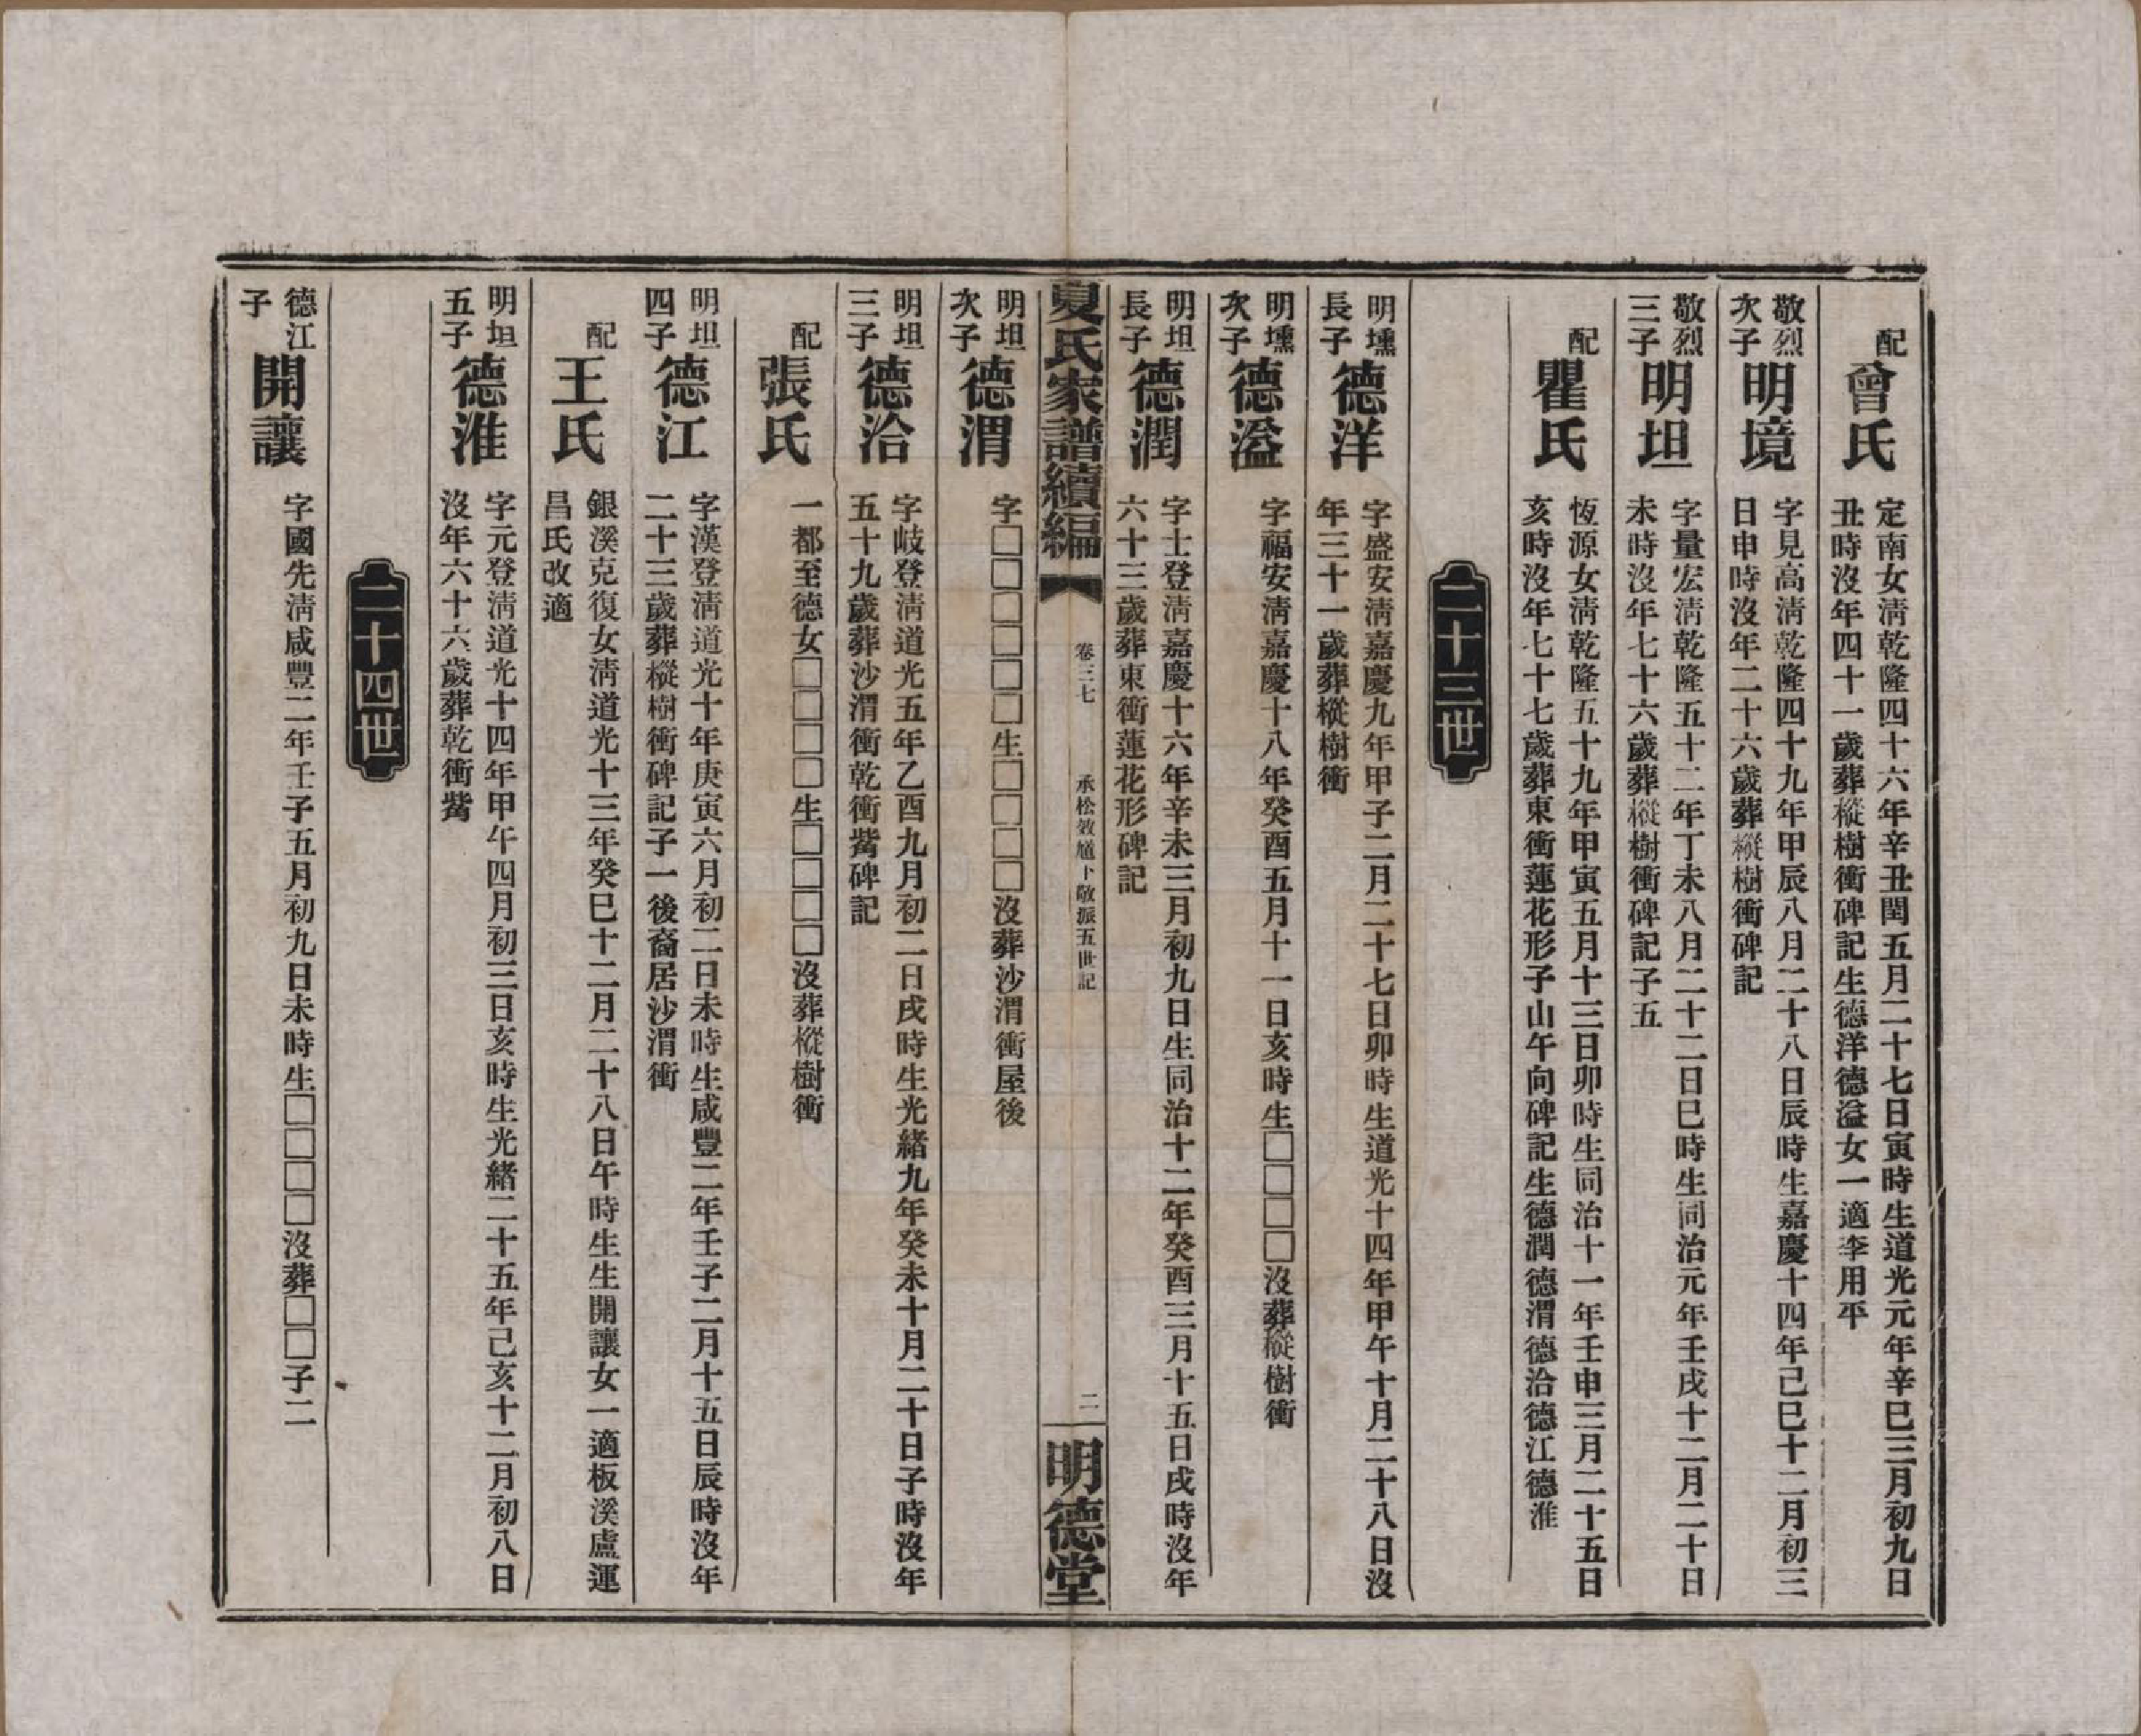 配
曾氏
定南女淸乾隆四十六年辛丑閏五月二十七日寅時生道光元年辛巳三月初九日
丑時沒年四十一歲葬樅樹衝碑記生德洋德溢女一適李用平
敬烈
次子
明境
字見高淸乾隆四十九年甲辰八月二十八日辰時生嘉慶十四年己巳十二月初三
日申時沒年二十六歲葬樅樹衝碑記
敬烈
三子
明坦
字量宏淸乾隆五十二年丁未八月二十二日巳時生同治元年壬戌十二月二十日
未時沒年七十六歲葬樅樹衝碑記子五
配
瞿氏
恆源女淸乾隆五十九年甲寅五月十三日卯時生同治十一年壬申三月二十五日
亥時沒年七十七歲葬東衝蓮花形子山午向碑記生德潤德渭德洽德江德淮
二十三世
明壎
長子
德洋
字盛安淸嘉慶九年甲子二月二十七日卯時生道光十四年甲午十月二十八日沒
年三十一歲葬樅樹衝
明壎
次子
德溢
字福安淸嘉慶十八年癸酉五月十一日亥時生□□□□沒葬樅樹衝
明坦
長子
德潤
字士登淸嘉慶十六年辛未三月初九日生同治十二年癸酉三月十五日戌時沒年
六十三歲葬東衝蓮花形碑記
夏氏家譜續編
卷三七
承松敘馗卜敬振五世記
二
明德堂
明坦
次子
德渭
字□□□□□□生□□□□沒葬沙渭衝屋後
明坦
三子
德洽
字岐登淸道光五年乙酉九月初二日戌時生光緒九年癸未十月二十日子時沒年
五十九歲葬沙渭衝乾衝觜碑記
配
張氏
一都至德女□□□□生□□□□沒葬樅樹衝
明坦
四子
德江
字漢登淸道光十年庚寅六月初二日未時生咸豐二年壬子二月十五日辰時沒年
二十三歲葬樅樹衝碑記子一後裔居沙渭衝
配
王氏
銀溪克復女淸道光十三年癸巳十二月二十八日午時生生開讓女一適板溪盧運
昌氏改適
明坦
五子
德淮
字元登淸道光十四年甲午四月初三日亥時生光緒二十五年己亥十二月初八日
沒年六十六歲葬乾衝觜
二十四世
德江
子
開讓
字國先淸咸豐二年壬子五月初九日未時生□□□□沒葬□□子二